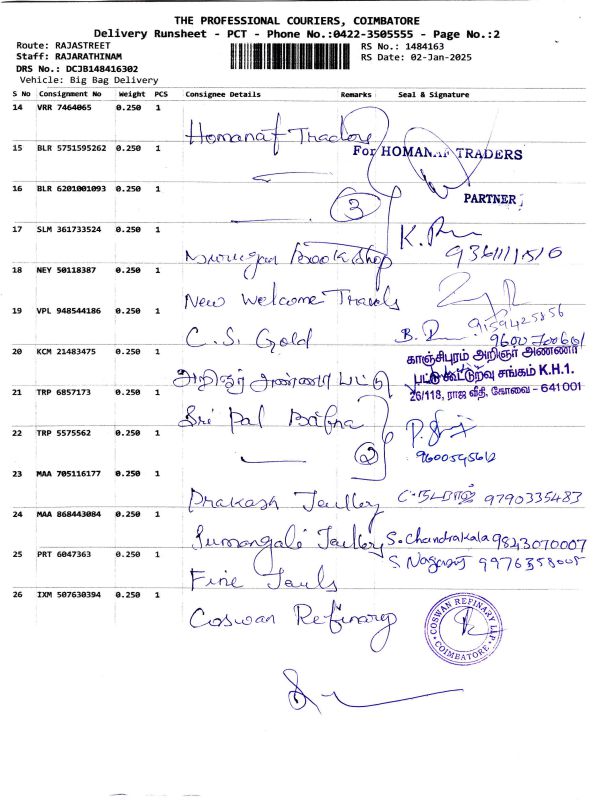 THE PROFESSIONAL COURIERS, COIMBATORE
Delivery Runsheet - PCT - Phone No.:0422-3505555 - Page No.:2
Route: RAJASTREET RS No.: 1484163
Staff: RAJARATHINAM RS Date: 02-Jan-2025
DRS No.: DCJB148416302
Vehicle: Big Bag Delivery
S No Consignment No Weight PCS Consignee Details Remarks Seal & Signature
14 VRR 7464065 0.250 1 Homanaf Traders
15 BLR 5751595262 0.250 1 For HOMANAF TRADERS
16 BLR 6201001093 0.250 1 3 PARTNER
17 SLM 361733524 0.250 1 Murugan Book Shop K.
18 NEY 50118387 0.250 1 New Welcome Travels
19 VPL 948544186 0.250 1 C.S. Gold B. 9159425856
20 KCM 21483475 0.250 1 அறிஞர் அண்ணா பட்டு
காஞ்சிபுரம் அறிஞர் அண்ணா
பட்டு கூட்டுறவு சங்கம் K.H.1.
26/118, ராஜ வீதி, கோவை - 641 001
21 TRP 6857173 0.250 1 Sri Pal Bafna
22 TRP 5575562 0.250 1 2 P.
23 MAA 705116177 0.250 1 Prakash Jaullery C. நடராஜ் 9790335483
24 MAA 868443084 0.250 1 Sumangali Jaullery S. Chandrakala 9843070007
25 PRT 6047363 0.250 1 Fine Jauls S.
26 IXM 507630394 0.250 1 Coswan Refinary
COSWAN REFINARY LLP
COIMBATORE